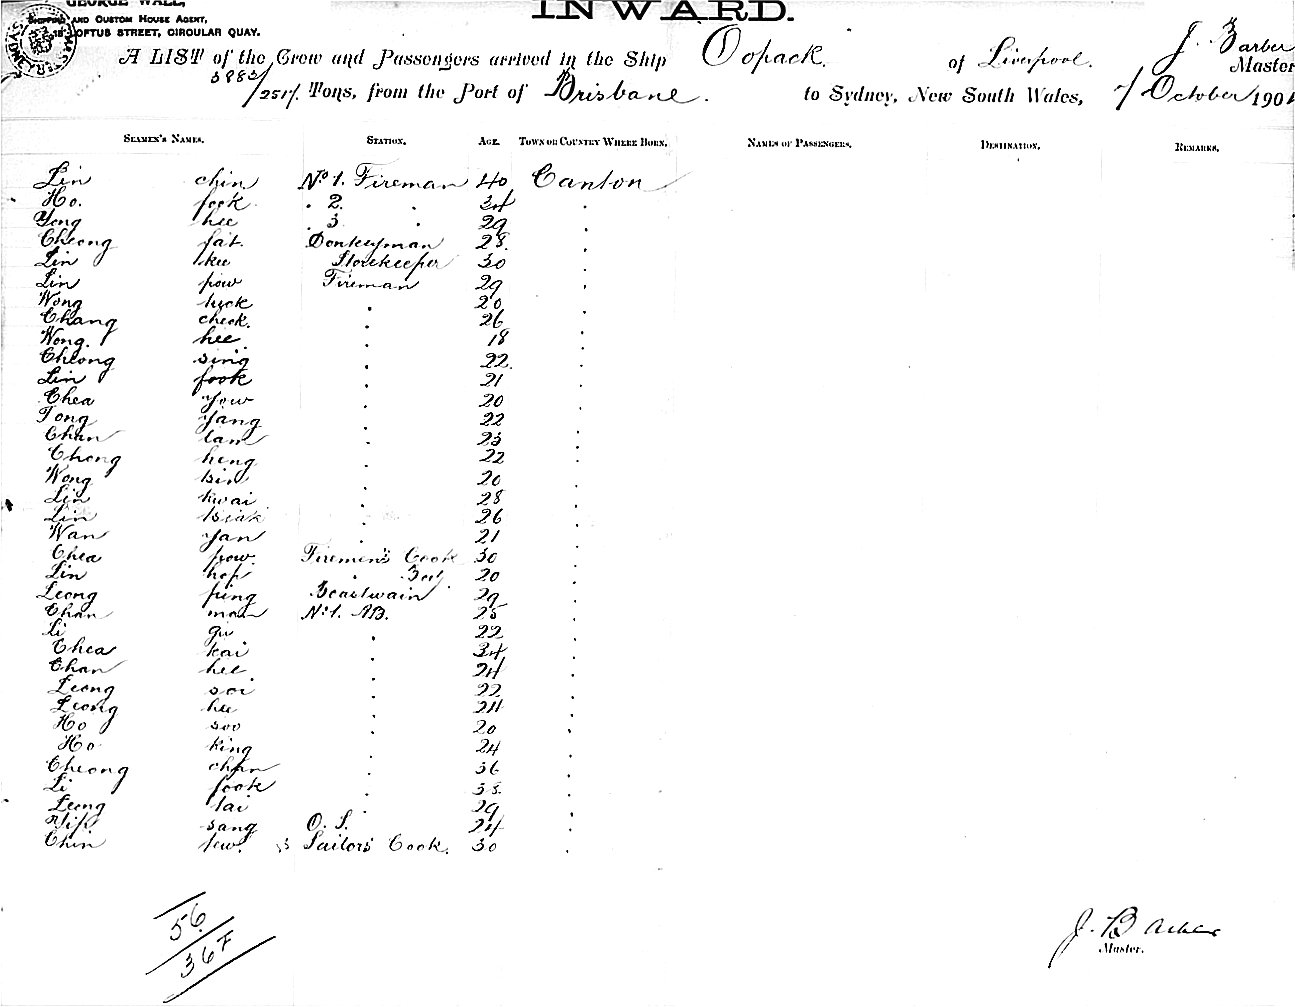 GEORGE WALL,
SHIPPING AND CUSTOM HOUSE AGENT,
LOFTUS STREET, CIRCULAR QUAY.
INWARD.
A LIST of the Crew and Passengers arrived in the Ship Oopack. of Liverpool. J. Barber Master
3883/2511. Tons, from the Port of Brisbane. to Sydney, New South Wales, 7/ October 1901
SEAMEN'S NAMES. STATION. AGE. TOWN OR COUNTRY WHERE BORN. NAMES OF PASSENGERS. DESTINATION. REMARKS.
Lin chin No 1. Fireman 40 Canton
Ho. fook . 2. . 34 .
Yong hee . 3 . 29 .
Cheong fat. Donkeyman 28. .
Lin kee Storekeeper 30 .
Lin pow Fireman 29 .
Wong huck . 20 .
Chang cheok. . 26 .
Wong. hee . 18 .
Cheong sing . 22. .
Lin fook . 21 .
Chea yow . 20 .
Tong yang . 22 .
Chan tam . 23 .
Chong heng . 22 .
Wong . 20 .
Lin kwai . 28 .
Lin . 26 .
Wan yan . 21 .
Chea pow. Firemen's Cook 30 .
Lin hop . Boy. 20 .
Leong ping Boastwain 29 .
Chan man No 1. AB. 25 .
Li . 22 .
Chea kai . 34 .
Chan hee . 24 .
Leong soi . 22 .
Leong hee . 24 .
Ho soo . 20 .
Ho king . 24 .
Cheong chan . 36 .
Li fook . 38. .
Leong tai . 29 .
Yip sang O. S. 24 .
Chin tew. Sailors' Cook. 30 .
56
36 F
J. Barber
Master.